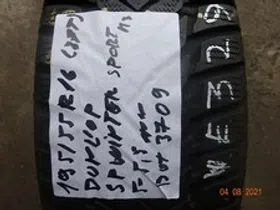 195/55R16 (87T)
DUNLOP
SP WINTER SPORT M3
DOT 3709
WE329
04 08 2021